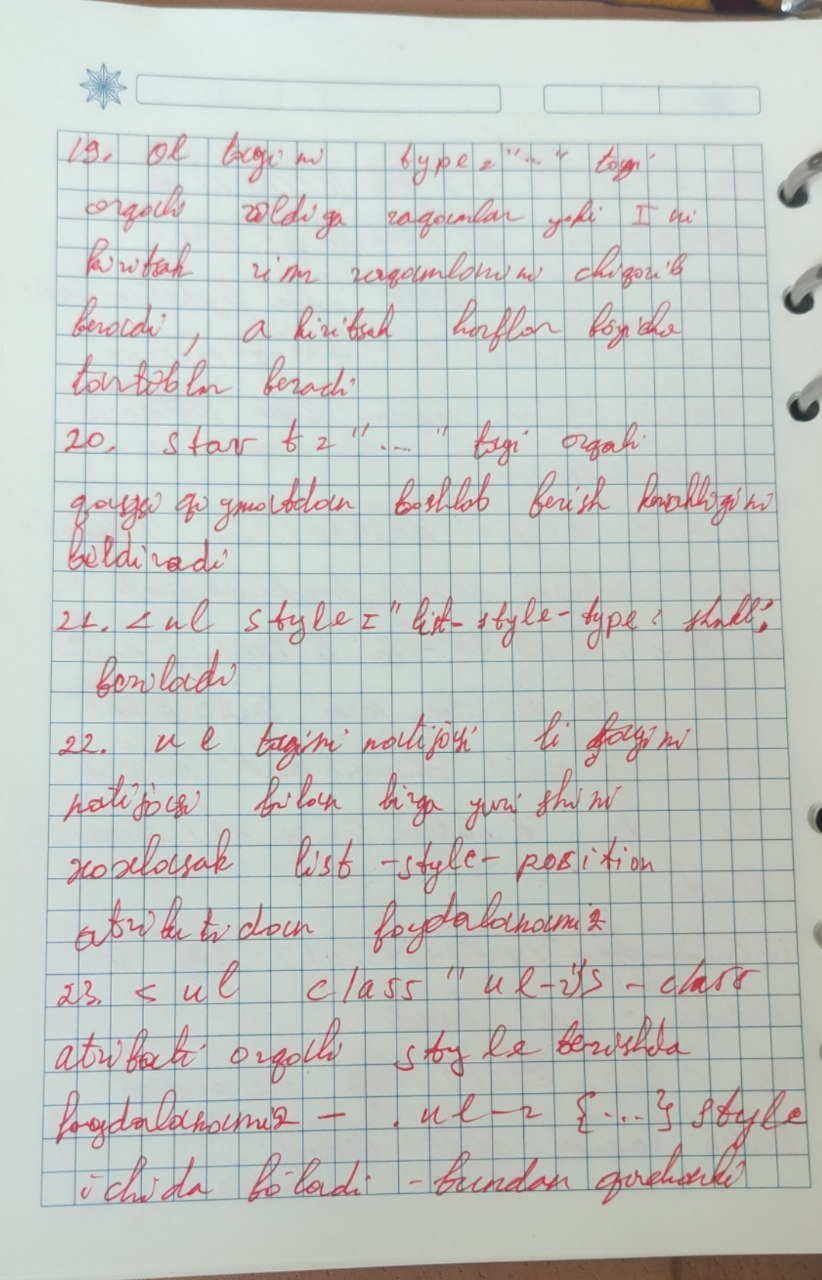 19. ol tagini type="..." tagi
orqali oldiga raqamlar yoki I ni
kiritsak rim raqamlarini chiqarib
beradi, a kiritsak harflar bo'yicha
tartiblar beradi
20. start="..." tagi orqali
qaysi qiymatdan boshlab berish kerakligini
bildiradi
21. <ul style="list-style-type: shakl;
beriladi
22. ul tagini natijasi li tagini
natijasi bilan birga yurishini
xoxlasak list-style-position
atributidan foydalanamiz
23. <ul class "ul-2"s - class
atributi orqali style berishda
foydalanamiz - .ul-2 {...} style
ichida bo'ladi - bundan